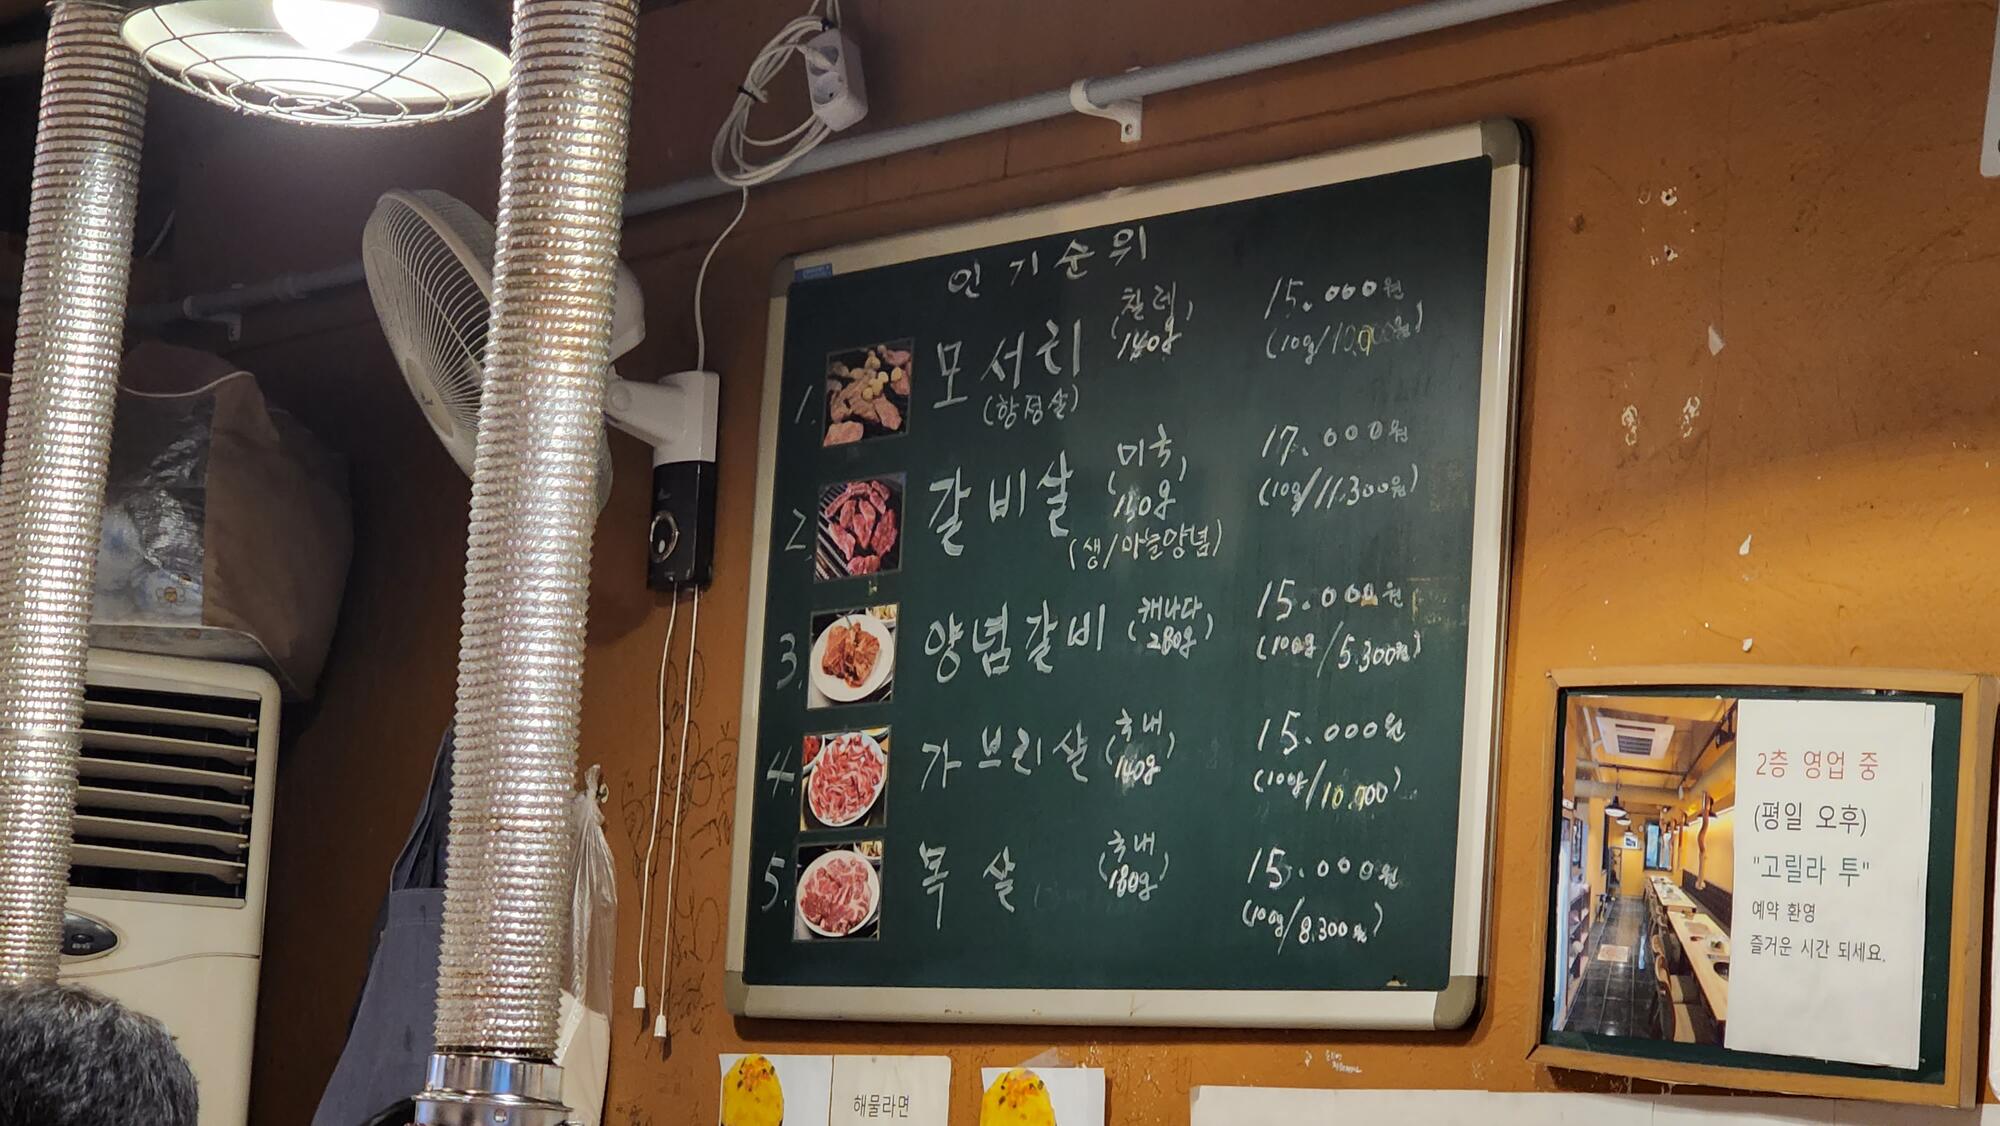 인기순위
1. 모서리 (칠레) 15.000원
(항정살) 140g (100g/10.000원)
2. 갈비살 (미국) 17.000원
150g (100g/11.300원)
(생/마늘양념)
3. 양념갈비 (캐나다) 15.000원
280g (100g/5.300원)
4. 가브리살 (국내) 15.000원
140g (100g/10.700)
5. 목살 (국내) 15.000원
180g (100g/8.300원)
2층 영업 중
(평일 오후)
"고릴라 투"
예약 환영
즐거운 시간 되세요.
해물라면